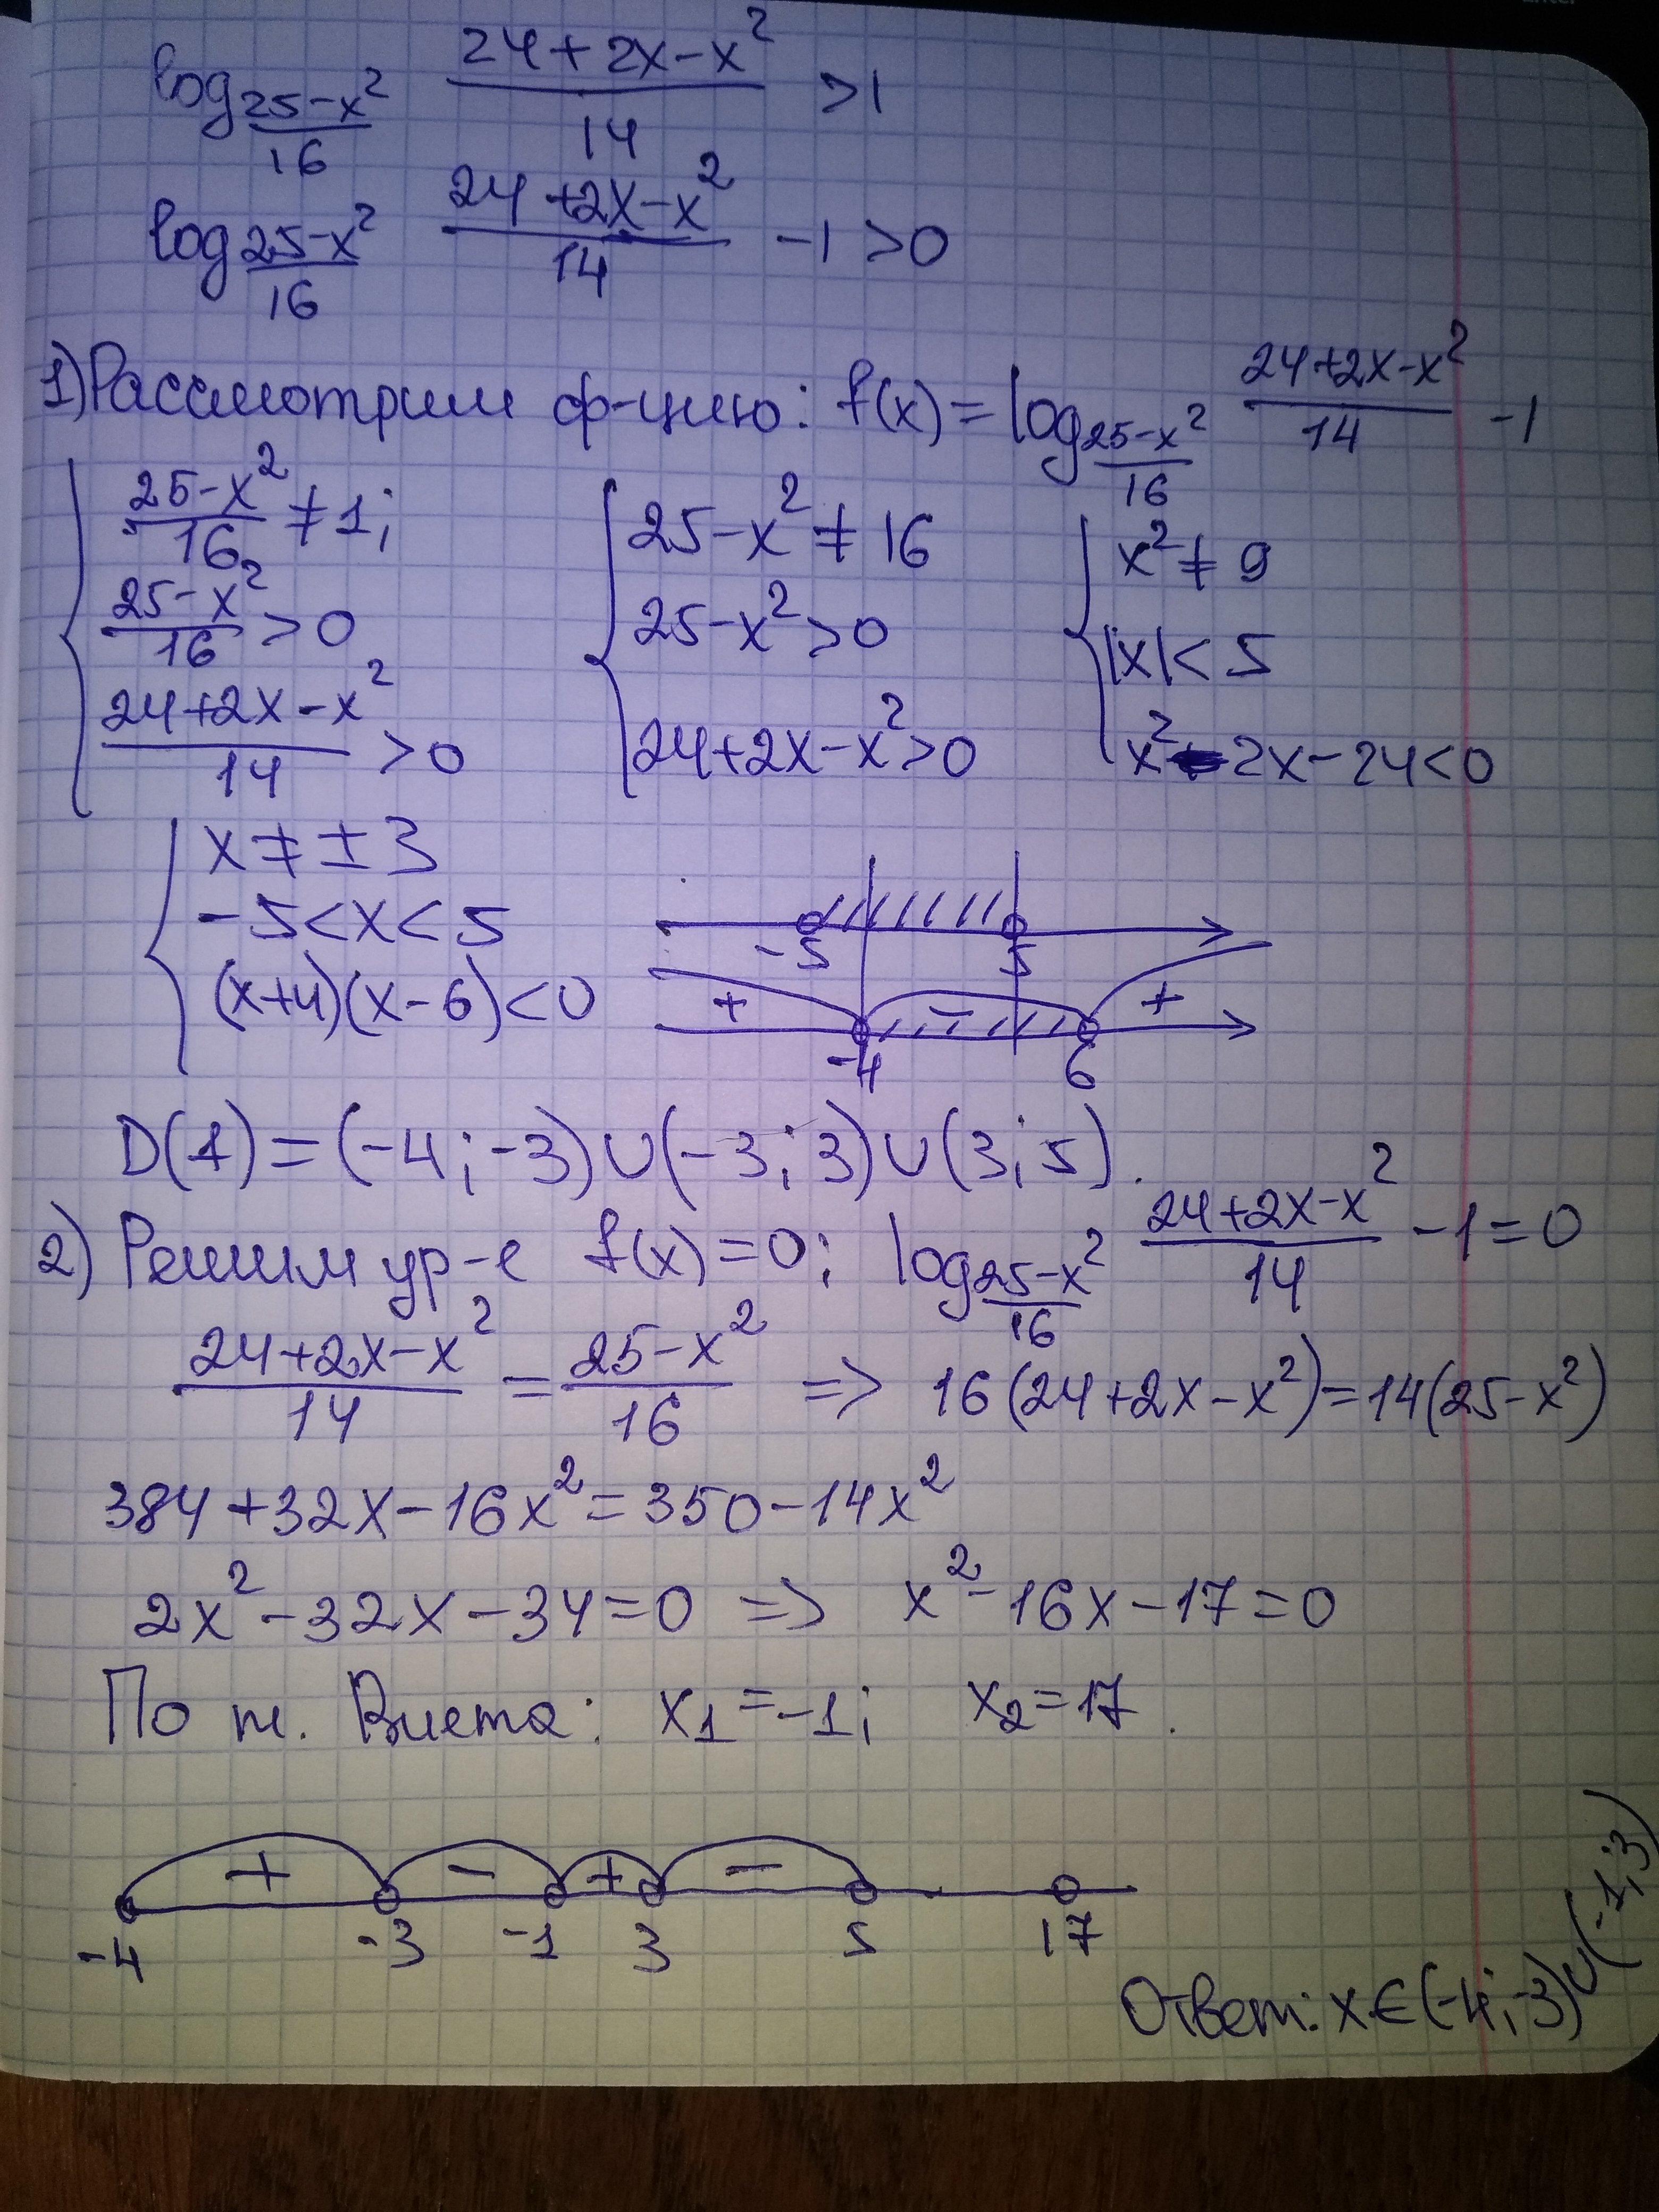 log_{(25-x²)/16} (24+2x-x²)/14 >1
log_{(25-x²)/16} (24+2x-x²)/14 -1>0
1) Рассмотрим ф-цию: f(x)=log_{(25-x²)/16} (24+2x-x²)/14 -1
{ (25-x²)/16 ≠1; { 25-x²≠16 { x²≠9
(25-x²)/16 >0 25-x²>0 |x|<5
(24+2x-x²)/14 >0 24+2x-x²>0 x²-2x-24<0
{ x≠±3
-5<x<5 -5 5
(x+4)(x-6)<0 + - +
-4 6
D(f)=(-4;-3)∪(-3;3)∪(3;5).
2) Решим ур-е f(x)=0; log_{(25-x²)/16} (24+2x-x²)/14 -1=0
(24+2x-x²)/14 = (25-x²)/16 => 16(24+2x-x²)=14(25-x²)
384+32x-16x²=350-14x²
2x²-32x-34=0 => x²-16x-17=0
По т. Виета: x₁=-1; x₂=17.
+ - + -
-4 -3 -1 3 5 17
Ответ: x∈(-4;-3)∪(-1;3)